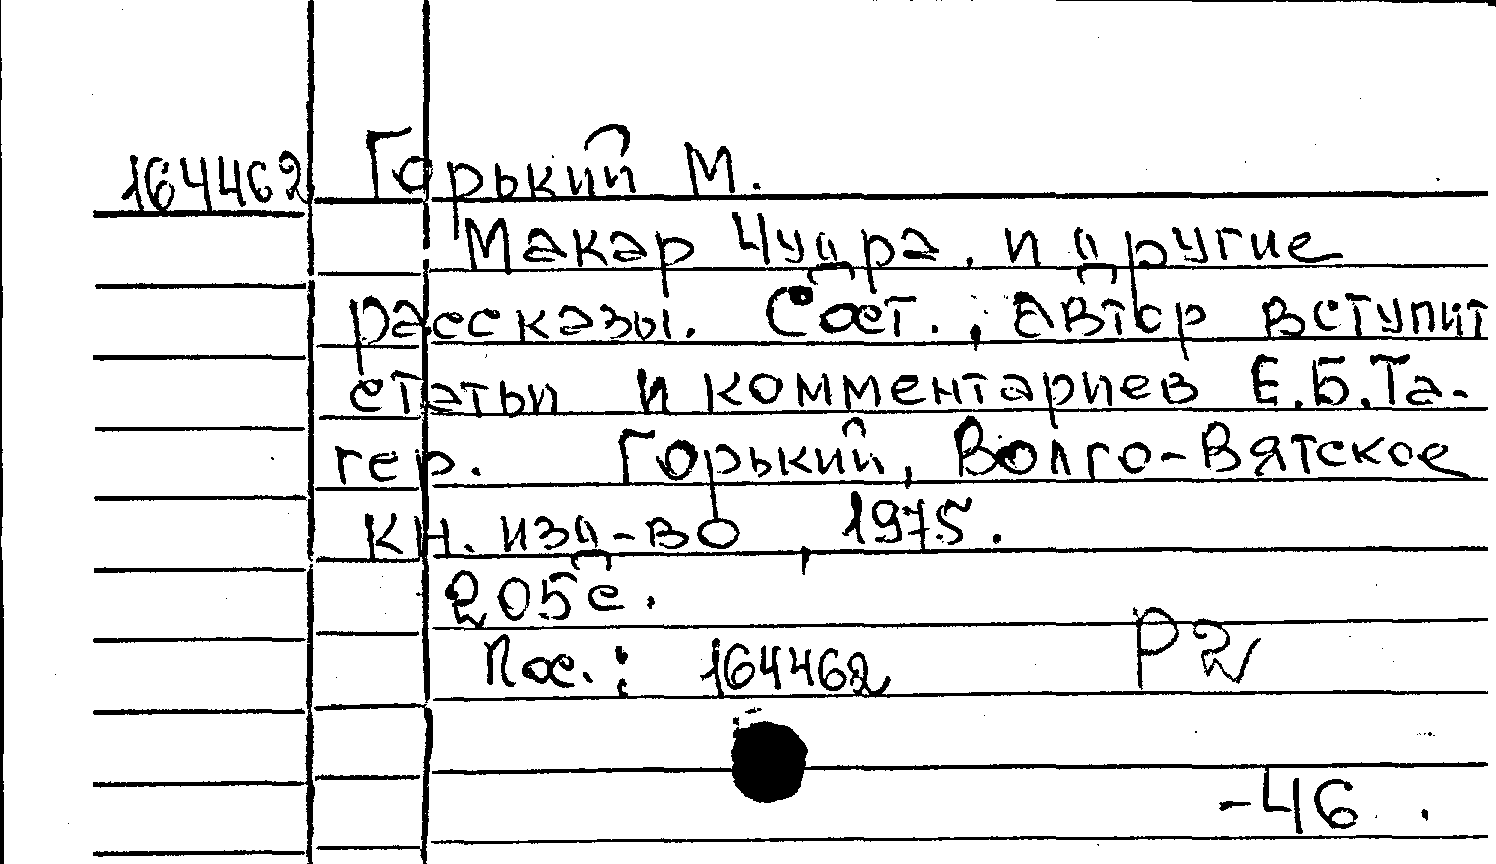 164462 Горький М.
Макар Чудра. и другие
рассказы. Сост., автор вступит
статьи и комментариев Е.Б.Та-
гер. Горький, Волго-Вятское
кн. изд-во, 1975.
205с.
Пос.: 164462 Р2
-46.